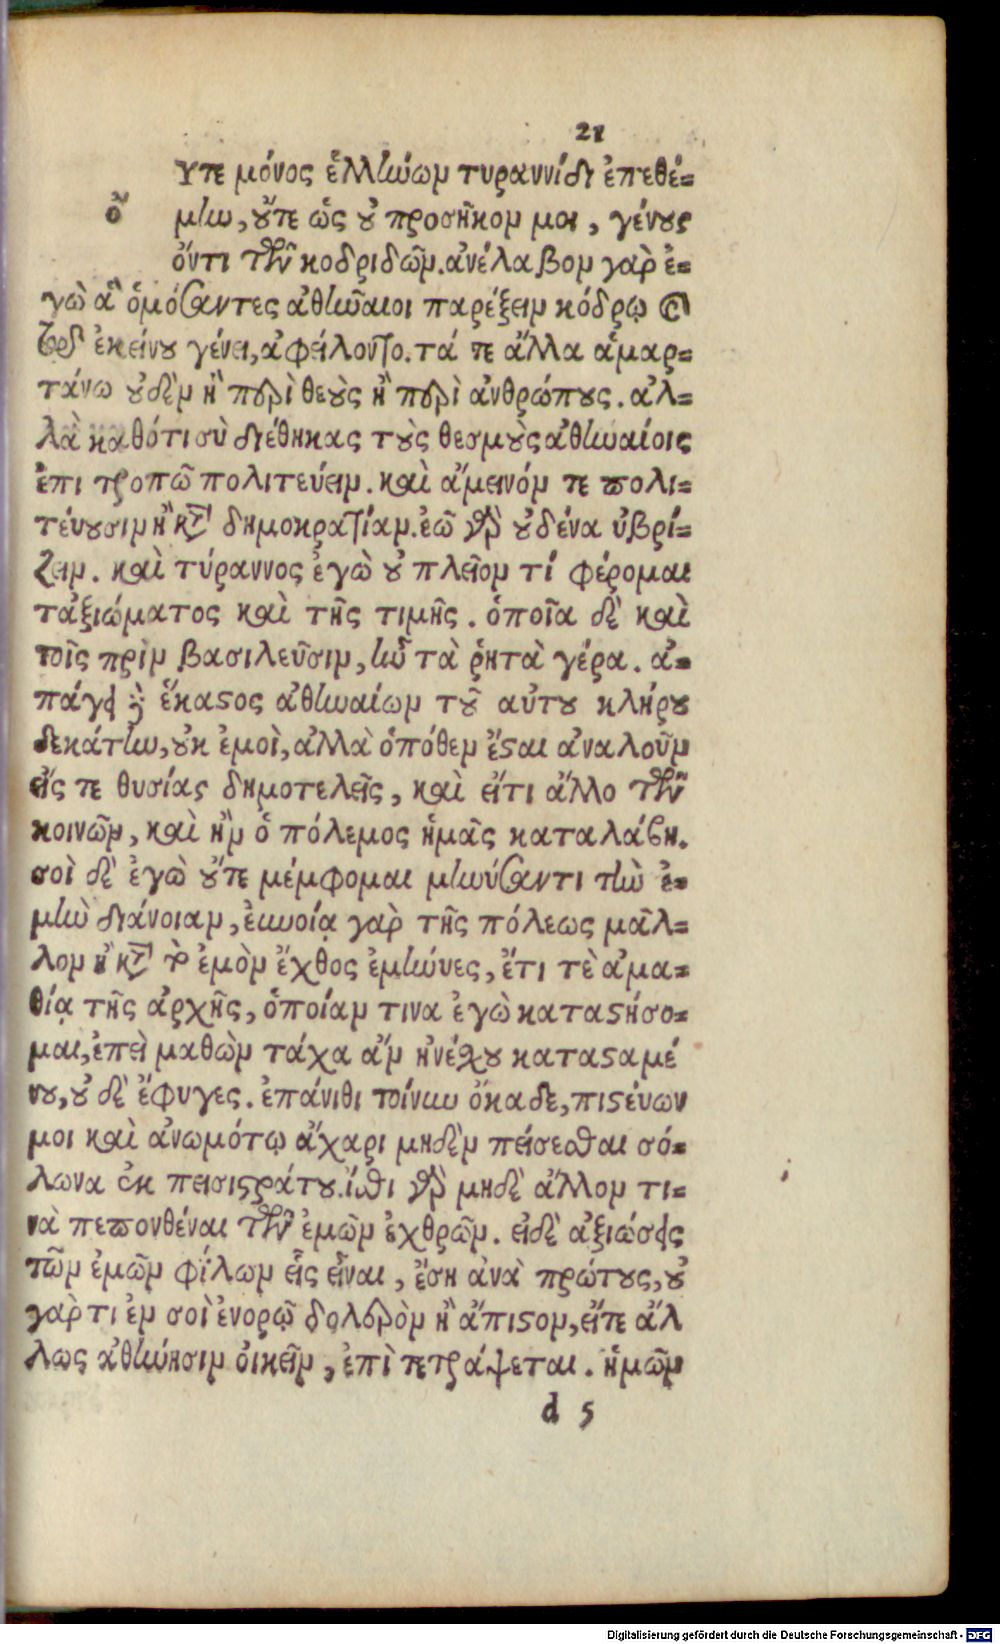 21
ὔ Υτε μόνος ἑλλήνων τυραννίδι ἐπεθέ-
μην, οὔτε ὡς οὐ προσῆκον μοι, γένους
ὄντι τῶν κοδριδῶν. ἀνέλαβον γὰρ ἐ-
γὼ ἃ ὀμόσαντες ἀθηναῖοι παρέξειν κόδρῳ καὶ
τῷ ἐκείνου γένει, ἀφείλοντο. τά τε ἄλλα ἁμαρ-
τάνω οὐδὲν ἢ περὶ θεοὺς ἢ περὶ ἀνθρώπους. ἀλ-
λὰ καθότι σὺ διέθηκας τοὺς θεσμοὺς ἀθηναίοις
ἐπι τροπῶ πολιτεύειν. καὶ ἄμεινόν τε πολι-
τέυουσιν ἢ κατὰ δημοκρατίαν. ἐῶ γὰρ οὐδένα ὑβρί-
ζειν. καὶ τύραννος ἐγὼ οὐ πλεῖον τί φέρομαι
τἀξιώματος καὶ τῆς τιμῆς. ὁποῖα δὲ καὶ
τοῖς πρὶν βασιλεῦσιν, ἦν τὰ ῥητὰ γέρα. ἀ-
πάγει δὲ ἕκαστος ἀθηναίων τοῦ αὑτου κλήρου
δεκάτην, οὐκ ἐμοὶ, ἀλλὰ ὁπόθεν ἔσται ἀναλοῦν
εἴς τε θυσίας δημοτελεῖς, καὶ εἴτι ἄλλο τῶν
κοινῶν, καὶ ἢν ὁ πόλεμος ἡμᾶς καταλάβη.
σοὶ δὲ ἐγὼ οὔτε μέμφομαι μηνύσαντι τὴν ἐ-
μὴν διάνοιαν, ἐυνοίᾳ γὰρ τῆς πόλεως μᾶλ-
λον ἢ κατὰ τὸ ἐμὸν ἔχθος ἐμήνυες, ἔτι τὲ ἀμα-
θίᾳ τῆς ἀρχῆς, ὁποίαν τινα ἐγὼ καταστήσο-
μαι, ἐπεὶ μαθὼν τάχα ἂν ἠνέχου κατασταμέ
νου, οὐ δὲ ἔφυγες. ἐπάνιθι τοίνυν οἴκαδε, πιστέυων
μοι καὶ ἀνωμότῳ ἄχαρι μηδὲν πείσεσθαι σό-
λωνα ἐκ πεισιστράτου. ἴσθι γὰρ μηδὲ ἄλλον τι-
νὰ πεπονθέναι τῶν ἐμῶν ἐχθρῶν. εἰδὲ ἀξιώσεις
τῶν ἐμῶν φίλων εἷς εἶναι, ἔση ἀνὰ πρώτους, οὐ
γὰρ τι ἐν σοὶ ἐνορῷ δολερὸν ἢ ἄπιστον, εἴτε ἄλ
λως ἀθήνησιν οἰκεῖν, ἐπὶ τετράψεται. ἡμῶν
d 5
Digitalisierung gefördert durch die Deutsche Forschungsgemeinschaft - DFG